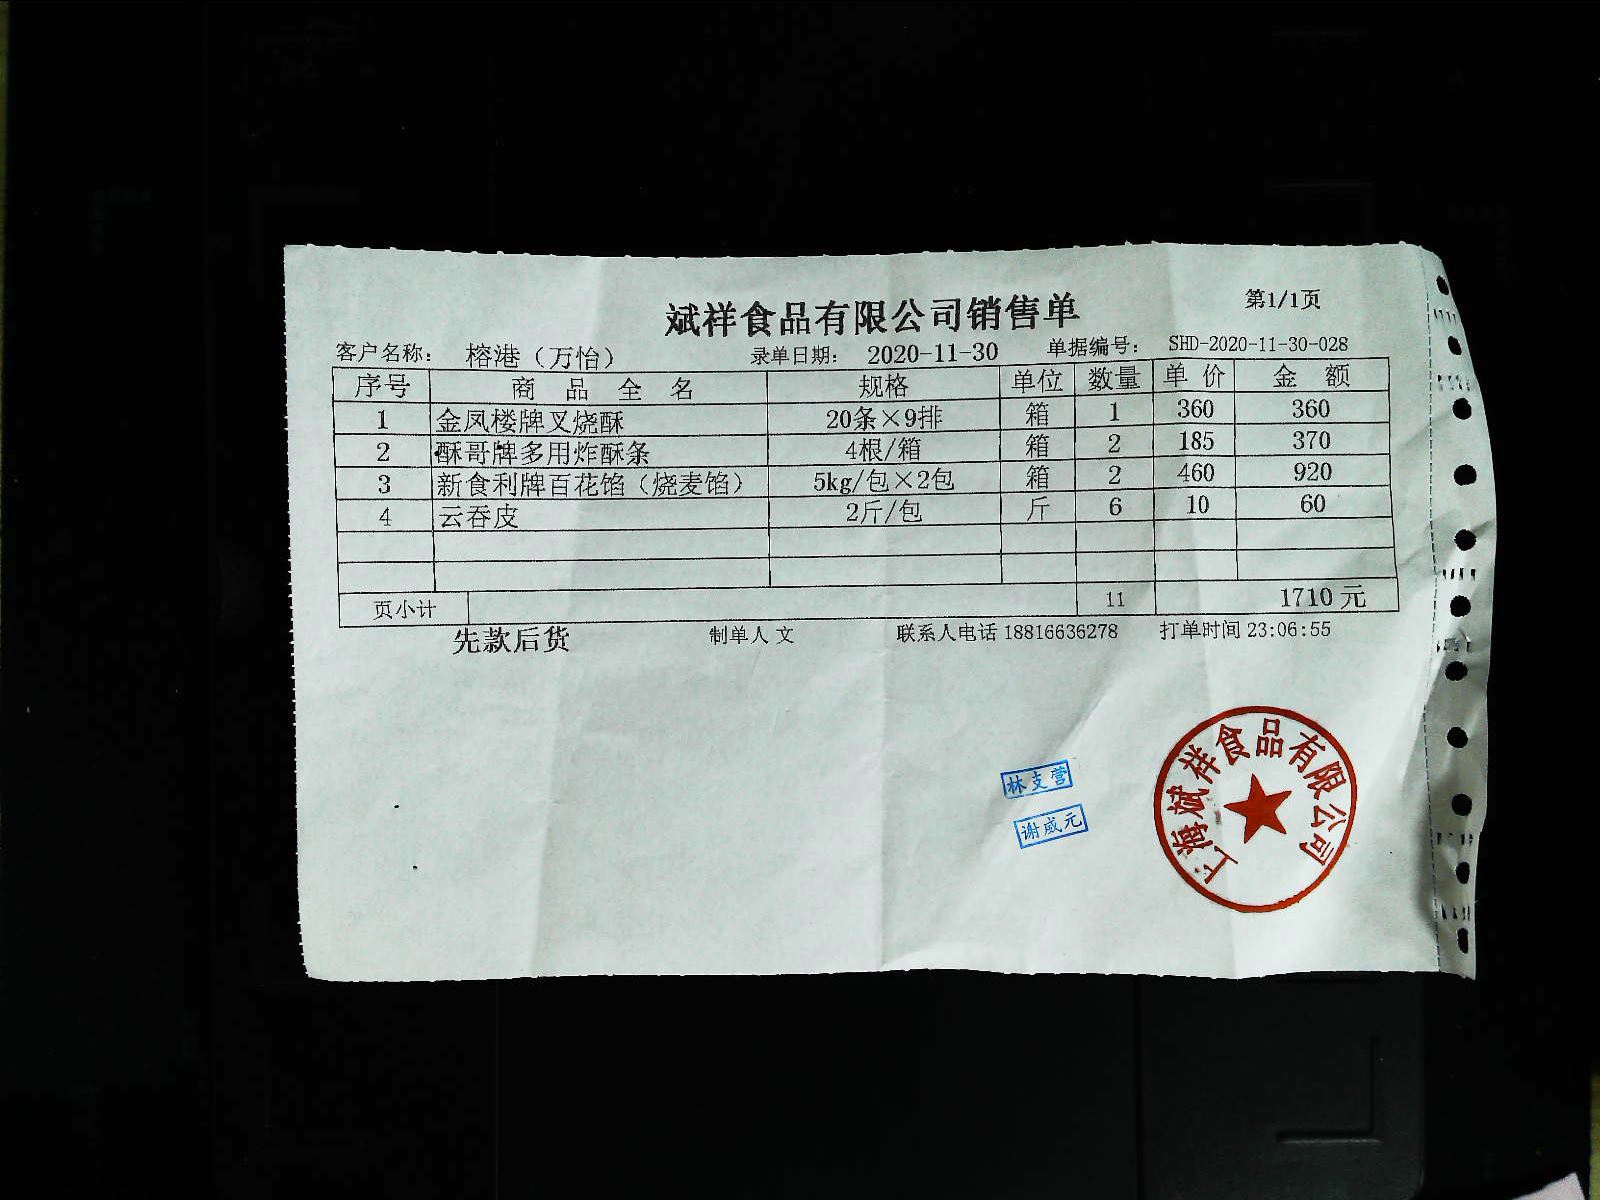 斌祥食品有限公司销售单 第1/1页
客户名称： 榕港（万怡） 录单日期： 2020-11-30 单据编号： SHD-2020-11-30-028
序号 商品全名 规格 单位 数量 单价 金额
1 金凤楼牌叉烧酥 20条×9排 箱 1 360 360
2 酥哥牌多用炸酥条 4根/箱 箱 2 185 370
3 新食利牌百花馅（烧麦馅） 5kg/包×2包 箱 2 460 920
4 云吞皮 2斤/包 斤 6 10 60
页小计 11 1710 元
先款后货 制单人 文 联系人电话 18816636278 打单时间 23:06:55
林支营
谢威元
上海斌祥食品有限公司